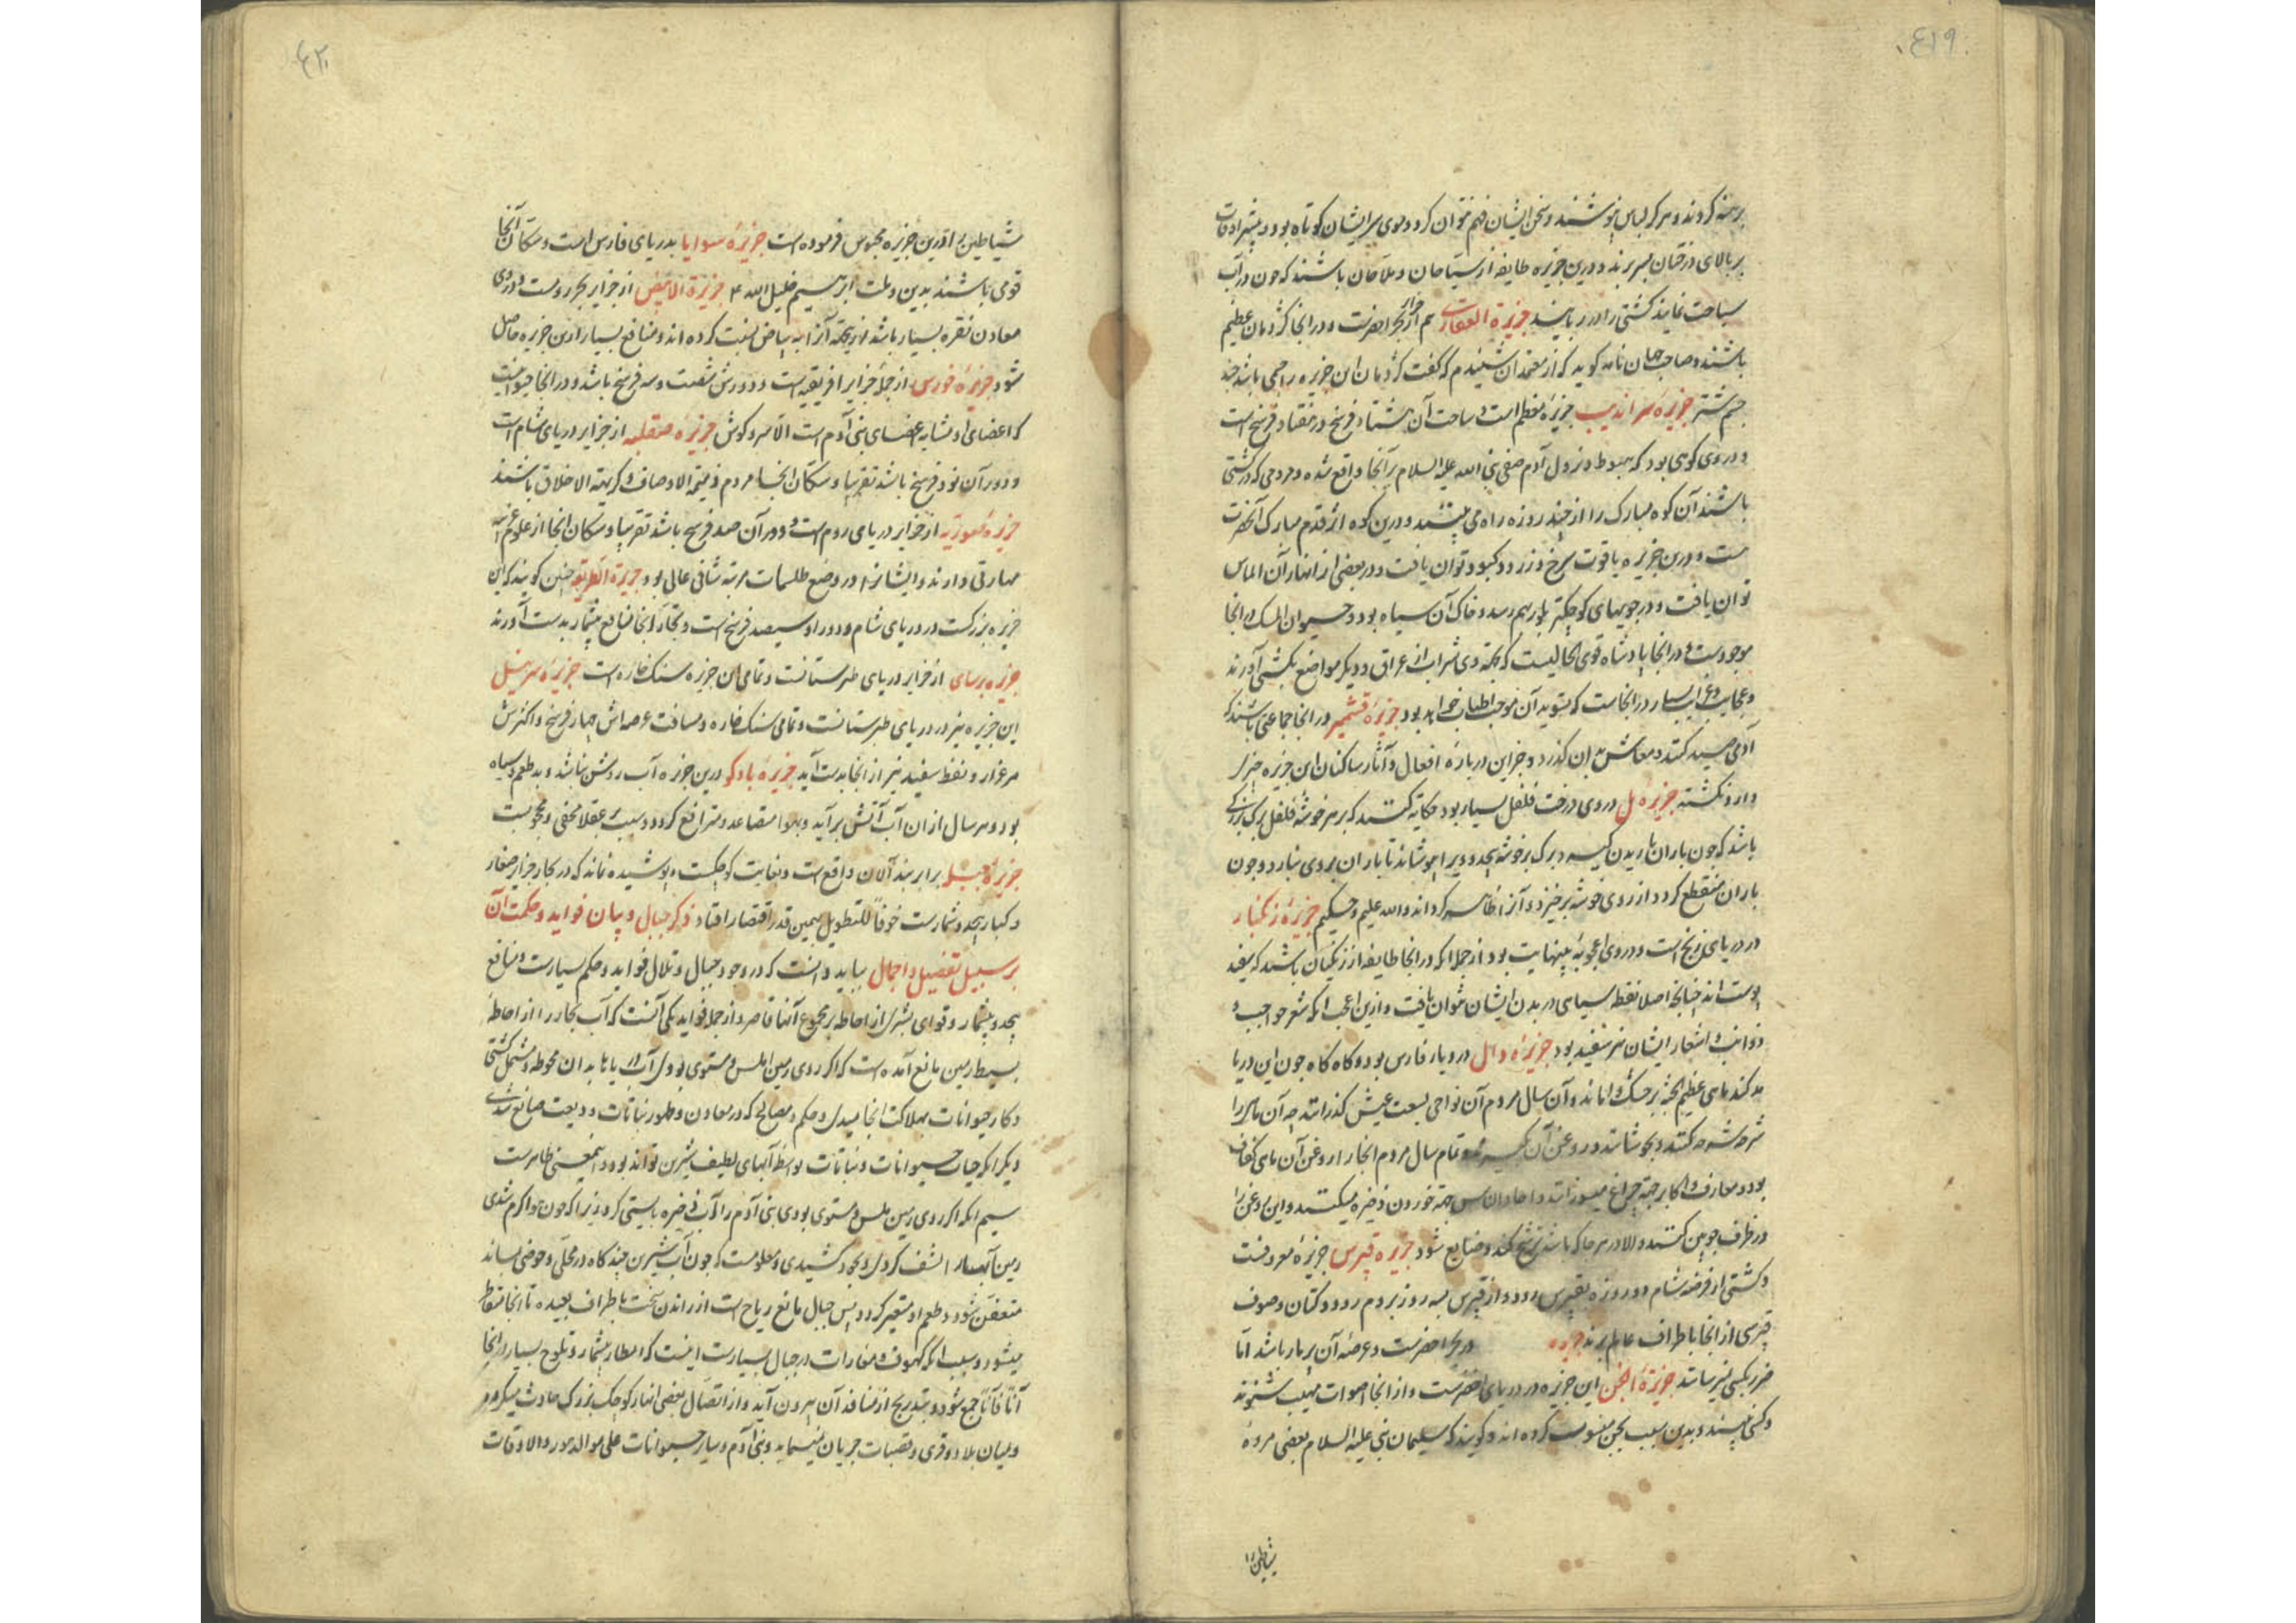 ٤١٩
برهنه گردند و هرگز لباس نپوشند و سخن ایشان فهم نتوان کرد و موی سر ایشان کوتاه بود و بیشتر اوقات
بر بالای درختان بسر برند و درین جزیره طایفه از سیاحان و ملاحان باشند که چون در آب
سباحت نمایند کشتی را در ربایند جزیرة العقارب هم از جزایر بحر اخضرست و در انجا کژدمان عظیم
باشند و صاحب جهان نامه کوید که از معتمدان شنیدم که گفت کژدمان این جزیره را حجمی باشد چند
جسم شتر جزیرۀ سراندیب جزیرۀ معظم است و ساحت آن هشتاد فرسخ در هفتاد فرسخ است
و در وی کوهی بود که هبوط و نزول آدم صفی نبی الله علیه السلام بر آنجا واقع شده و مردمی که در کشتی
باشند آن کوه مبارک را از چند روزه راه می بینند و درین کوه اثر قدم مبارک آنحضرت
هست و درین جزیره یاقوت سرخ و زرد و کبود توان یافت و در بعضی از انهار آن الماس
توان یافت و در جویهای کوچکتر بلور بهم رسد و خاک آن سیاه بود و حیوان المسک در انجا
موجودست و در انجا پادشاه قوی الحالیست که بجهته وی شراب از عراق و دیگر مواضع بکشتی آورند
و عجایب و غرایب بسیار در انجاست که تسوید آن موجب اطناب خواهد بود جزیرۀ قشمیر در انجا جماعتی باشند که
آدمی صید کنند و معاش بدان گذرد و جز این دربارۀ افعال و آثار ساکنان این جزیره خبر
وارد نکشته جزیره مل در وی درخت فلفل بسیار بود حکایة کنند که بر هر خوشۀ فلفل برگ بزرگی
باشد که چون باران باریدن گیرد برگ بر خوشه پیچد و ویرا بپوشاند تا باران بروی نبارد و چون
باران منقطع گردد از روی خوشه برخیزد و آنرا ظاهر گرداند والله علیم و حکیم جزیرۀ زنگبار
در دریای زنج است و در وی اعجوبۀ بینهایت بود از جمله انکه در انجا طایفه از زنگیان باشند که سفید
پوست اند چنانچه اصلا نقطه سیاهی در بدن ایشان نتوان یافت و ازین اعجب انکه شعر حواجب و
ذوائب و اشعار ایشان نیز سفید بود جزیرۀ وال در دیار فارس بود و گاه گاه چون این دریا
مد کند ماهی عظیم الجثه بر خشک اماند و آن سال مردم آن نواحی بسعت عیش گذرانند چه آن ماهی را
شرحه شرحه کنند و بجوشانند و روغن آن بگیرند و تمام سال مردم انجا را روغن آن ماهی کفاف
بود و معارف و اکابر جهة چراغ میسوزانند و احاد الناس جهة خوردن ذخیره میکنند و این روغن را
در ظرف چوبین کنند و الا در هر جا که باشد ترشح کند و ضایع شود جزیره قبرس جزیرۀ معروفست
و کشتی از فرضه شام دو روزه بقبرس رود و از قبرس بسه روز بروم رود و کتان و صوف
قبرسی از انجا باطراف عالم برند جزیره در بحر اخضرست و عرصۀ آن پر مار باشد اما
ضرر بکسی نیرسانند جزیرة الجن این جزیره در دریای اخضرست و از انجا اصوات مهیب شنوند
و کسی نبینند و بدین سبب بجن منسوب کرده اند و گویند که سلیمان نبی علیه السلام بعضی مردۀ
شیاطین را
٤٢٠
شیاطین را درین جزیره محبوس فرموده است جزیرۀ سوایا بدریای فارس است و سکان آنجا
قومی باشند بدین و ملت ابرهیم خلیل الله ٤ جزیرة الابیض از جزایر بحر رومست و در وی
معادن نقره بسیار باشد ازینجهته آنرا به بیاض نسبت کرده اند و منافع بسیار ازین جزیره حاصل
شود جزیرۀ خورس از جملۀ جزایر افریقیه است و دورش شصت و سه فرسخ باشد و در انجا حیوانیست
که اعضای او مشابه اعضای بنی آدم است الا سر و گوش جزیره صقلیه از جزایر دریای شام است
و دور آن نود فرسخ باشد تقریبا و سکان انجا مردم ذمیمة الاوصاف و کریهة الاخلاق باشند
جزیرۀ عموریه از جزایر دریای روم است و دور آن صد فرسخ باشد تقریبا و سکان انجا از علوم غریبه
مهارتی دارند و ایشانرا در وضع طلسمات مرتبه شانی عالی بود جزیرة الطریقه چنین گویند که این
جزیره بزرگست در دریای شام و دور او سیصد فرسخ است و تجار انجا منافع بیشمار بدست آورند
جزیره برسای از جزایر دریای طبرستانست و تمامی این جزیره سنگ خاره است جزیرۀ سرسیل
این جزیره نیز در دریای طبرستانست و تمامی سنگ خاره و مسافت عرصه اش چهار فرسخ و اکثرش
مرغزار و نفط سفید نیز از انجا بدست آید جزیرۀ بادکو درین جزیره آب روشن نباشد و بد طعم و سیاه
بود و هر سال از ان آب آتش برآید و بهوا متصاعد و مترافع گردد و سبب بر عقلا مخفی و محجوبست
جزیرۀ جبیل برابر بند آلان واقع است و بغایت کوچکست و پوشیده نماند که در بحار جزایر صغار
و کبار بیحد و شمارست خوفاً للتطویل بهمین قدر اقتصار افتاد ذکر جبال و بیان فواید و حکمت آن
بر سبیل تفضیل و اجمال بباید دانست که در وجود جبال و تلال فواید و حکم بسیارست و منافع
بیحد و بیشمار و قوای بشری از احاطه بر مجموع آنها قاصر و از جمله فواید یکی آنست که آب بحار را از احاطۀ
بسیط زمین مانع آمده است که اگر روی زمین املس و مستوی بودی آب دریاها بدان محوطه و مشتمل گشتی
و کار حیوانات بهلاکت انجامیدی و حکم و مصالحی که در معادن و ظهور نباتات ودیعت ضایع شدی
دیگر آنکه حیات حیوانات و نباتات بواسطۀ آبهای لطیف شیرین تواند بود و اینمعنی ظاهرست
سیم انکه اگر روی زمین املس و مستوی بودی بنی آدم را آب ذخیره بایستی کرد زیرا که چون هوا گرم شدی
زمین آبها را نشف کردی و بخود کشیدی و معلومست که چون آب شیرین چندگاه در محلی و حوضی بماند
متعفن شود و طعم او متغیر گردد پس جبال مانع ریاح است از راندن سخت باطراف بعیده تا انجا متقاطر
میشود و سبب انکه کهوف و مغارات در جبال بسیارست اینست که امطار بیشمار و ثلوج بسیار در انجا
آناً فآناً جمع شود و بتدریج از منافذ آن بیرون آید و از اتصال بعضی انهار کوچک بزرگ حادث میگردد
و میان بلاد و قری و قصبات جریان مینماید و بنی آدم و سایر حیوانات علی موالدهور والاوقات